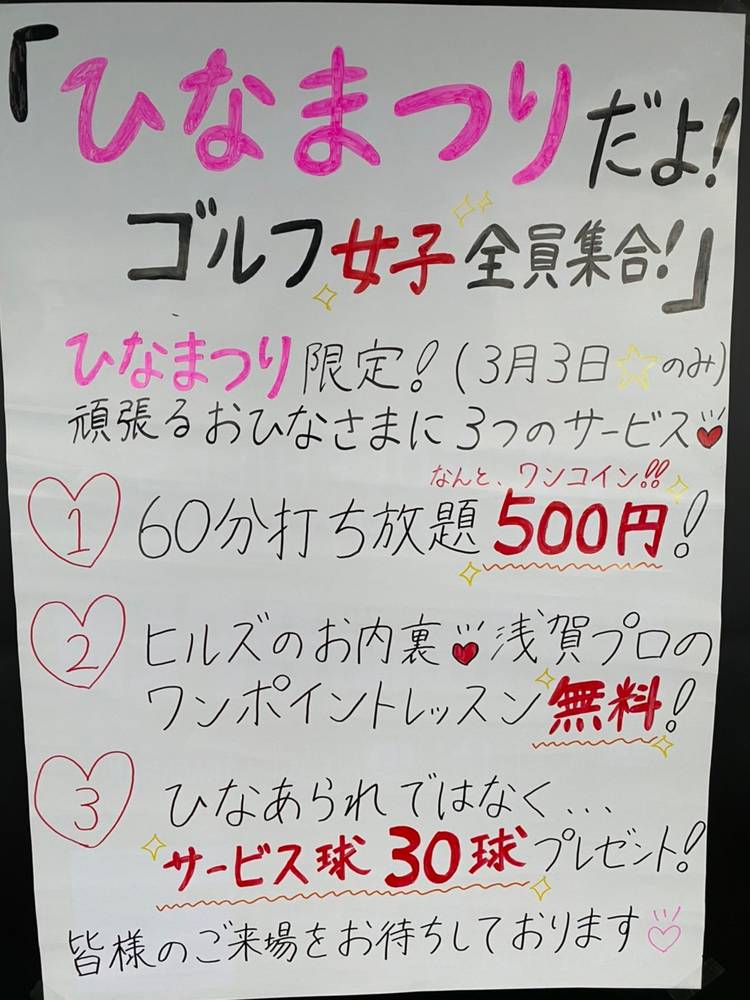 「ひなまつりだよ!
ゴルフ女子全員集合!」
ひなまつり限定!(3月3日☆のみ)
頑張るおひなさまに3つのサービス♥
なんと、ワンコイン!!
1 60分打ち放題500円!
2 ヒルズのお内裏♥浅賀プロの
ワンポイントレッスン無料!
3 ひなあられではなく...
サービス球30球プレゼント!
皆様のご来場をお待ちしております♡